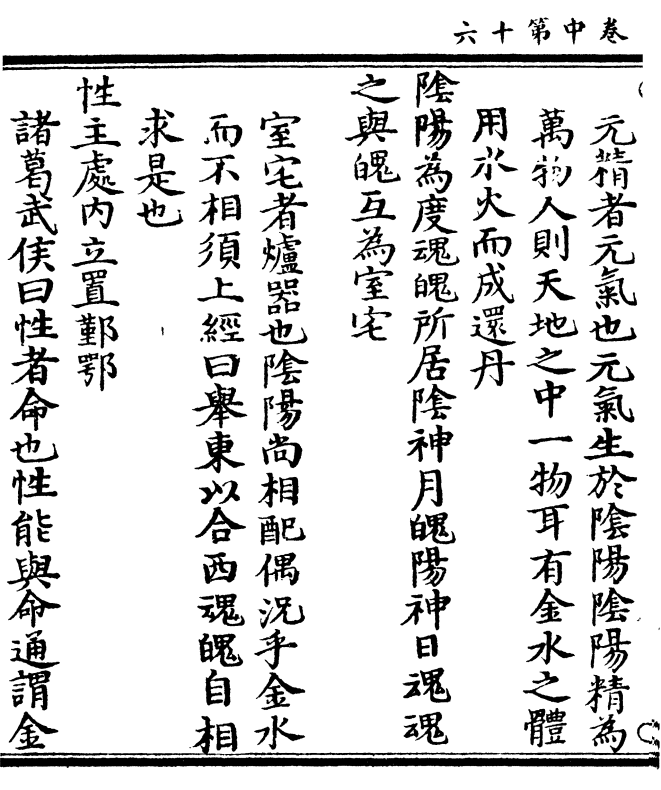 卷中第十六
元精者元氣也元氣生於陰陽陰陽精為
萬物人則天地之中一物耳有金水之體
用水火而成還丹
陰陽為度魂魄所居陰神月魄陽神日魂魂
之與魄互為室宅
室宅者爐器也陰陽尚相配偶況乎金水
而不相須上經曰舉東以合西魂魄自相
求是也
性主處內立置鄞鄂
諸葛武侯曰性者命也性能與命通謂金